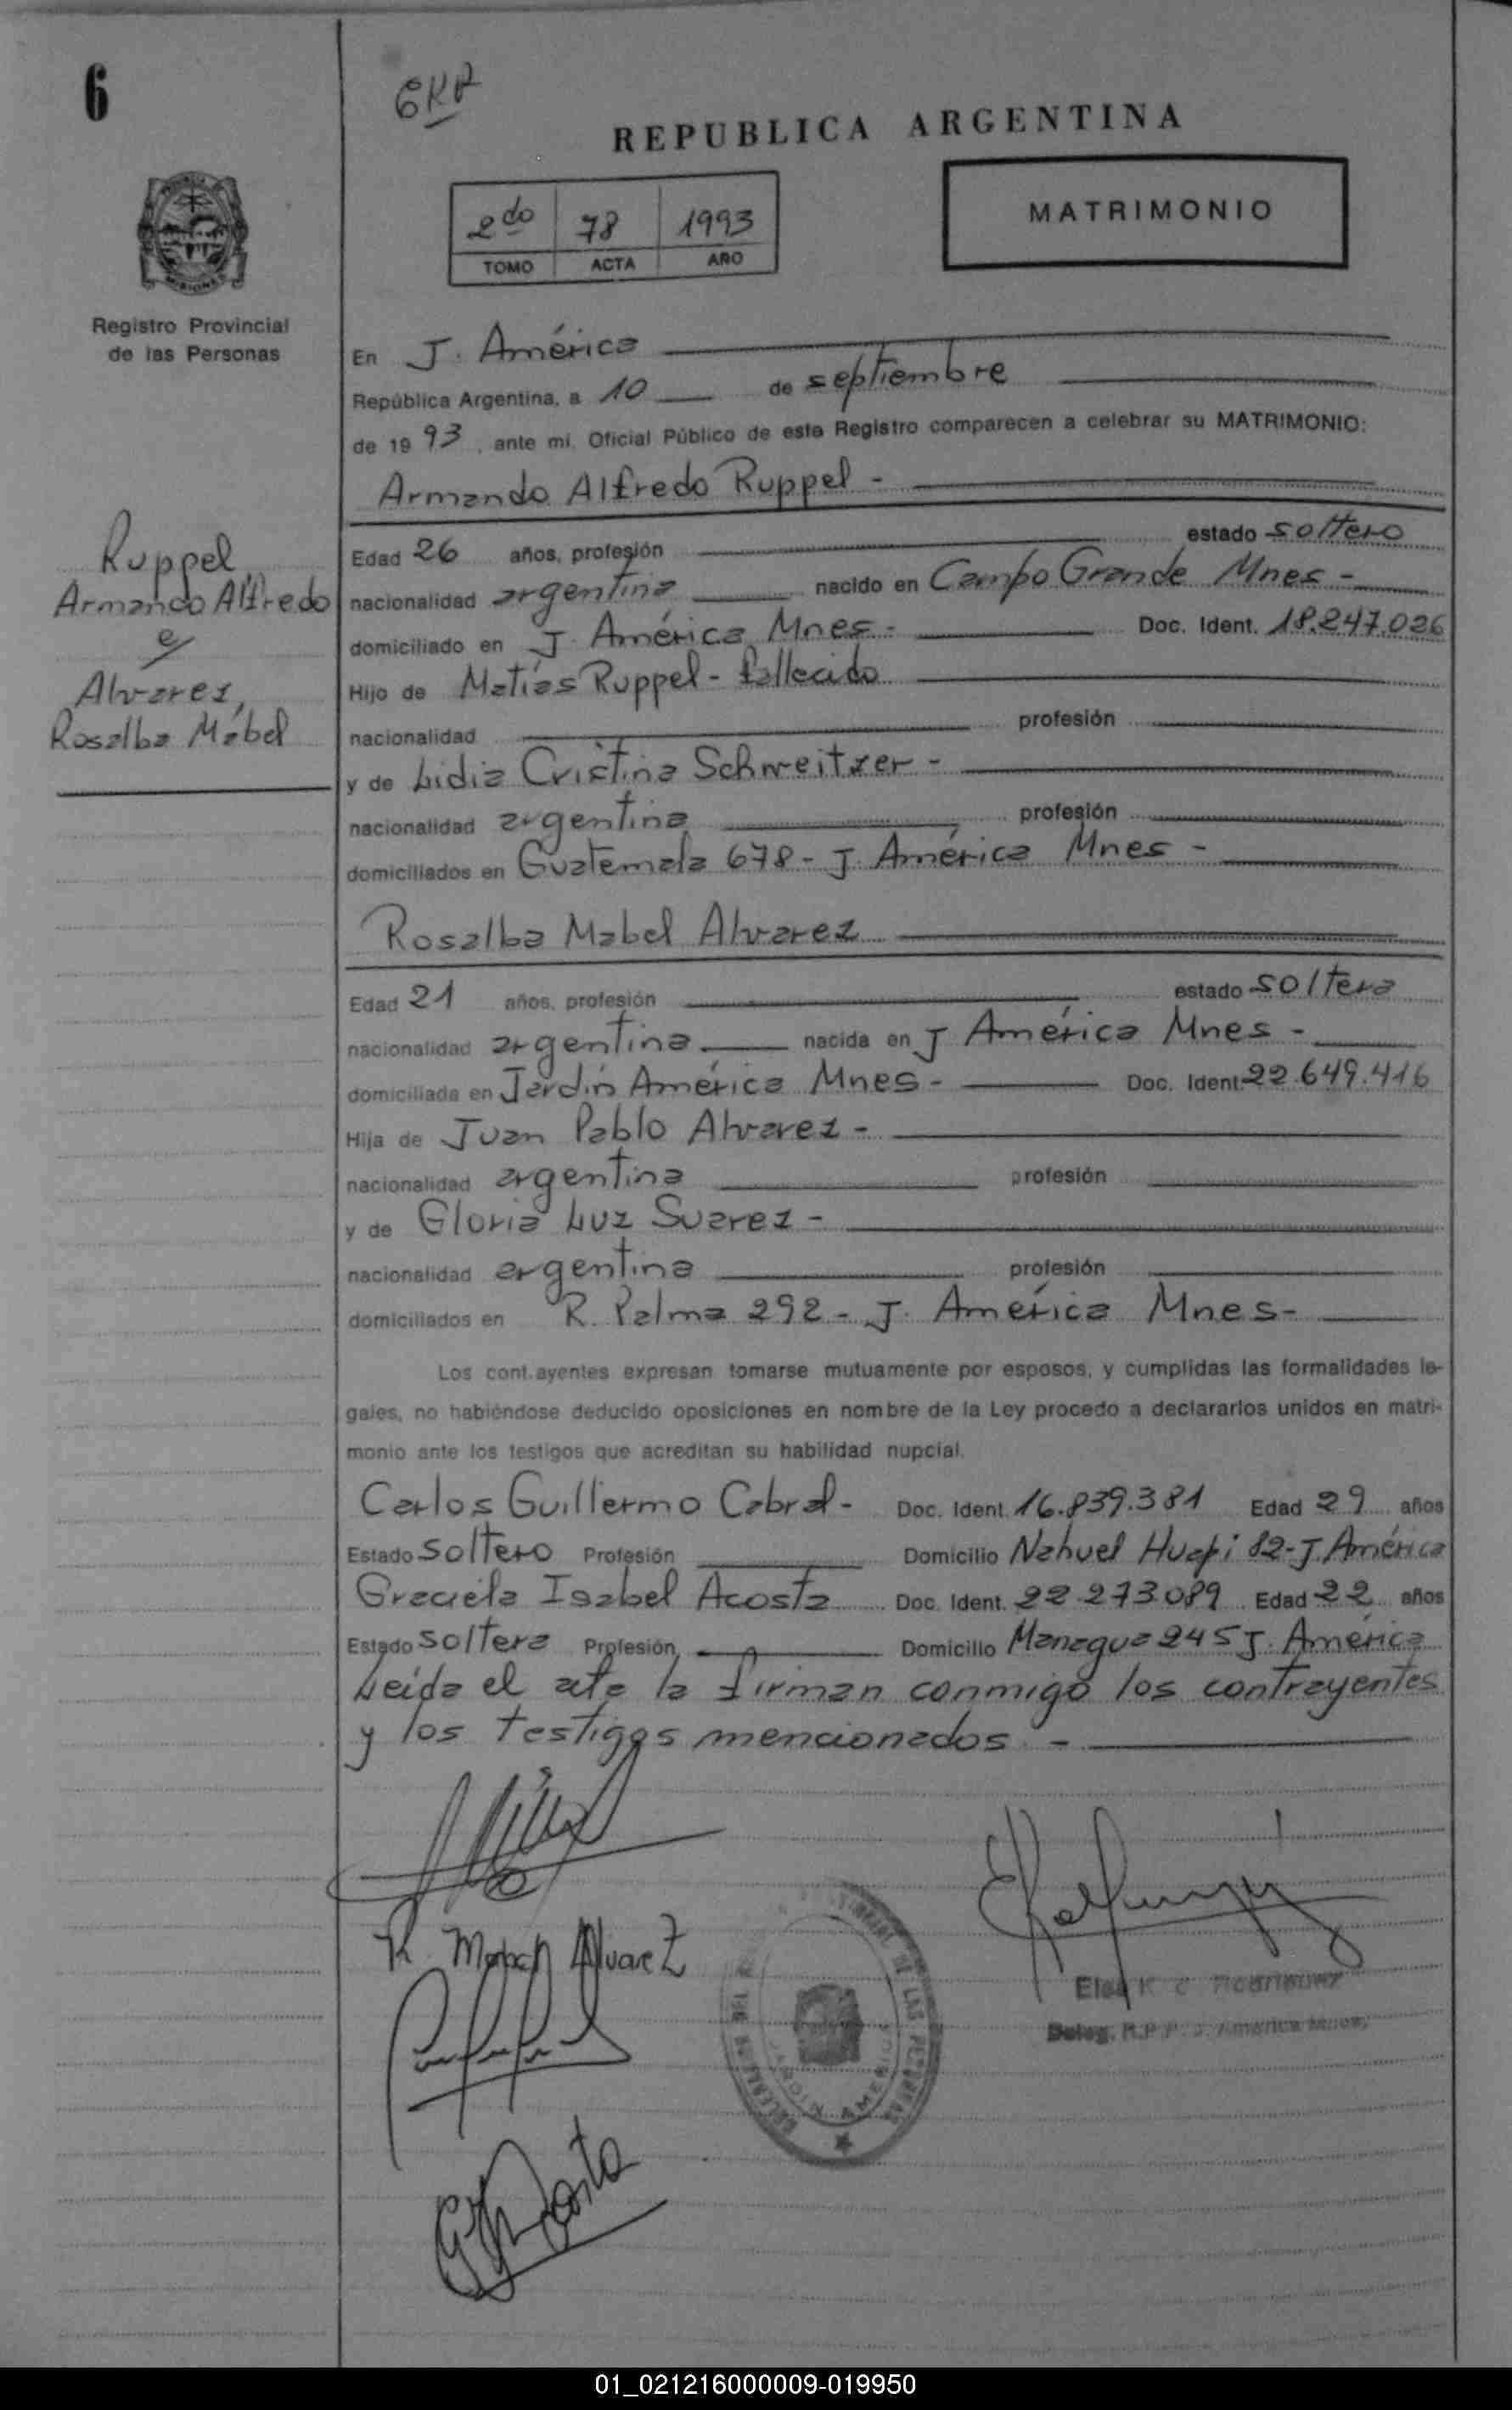 6
GKA
REPUBLICA ARGENTINA
2do 78 1993
TOMO ACTA AÑO
MATRIMONIO
Registro Provincial
de las Personas
En J. América
República Argentina, a 10 de septiembre
de 19 93, ante mi, Oficial Público de este Registro comparecen a celebrar su MATRIMONIO:
Armando Alfredo Ruppel -
Ruppel
Armando Alfredo
e/
Alvarez,
Rosalba Mabel
Edad 26 años, profesión estado soltero
nacionalidad argentina nacido en Campo Grande Mnes -
domiciliado en J. América Mnes - Doc. Ident. 18.247.026
Hijo de Matías Ruppel - fallecido
nacionalidad profesión
y de Lidia Cristina Schweitzer -
nacionalidad argentina profesión
domiciliados en Guatemala 678 - J. América Mnes -
Rosalba Mabel Alvarez
Edad 21 años, profesión estado soltera
nacionalidad argentina nacida en J América Mnes -
domiciliada en Jardín América Mnes - Doc. Ident 22.649.416
Hija de Juan Pablo Alvarez -
nacionalidad argentina profesión
y de Gloria Luz Suarez -
nacionalidad argentina profesión
domiciliados en R. Palma 292 - J. América Mnes -
Los cont.ayentes expresan tomarse mutuamente por esposos, y cumplidas las formalidades le-
gales, no habiéndose deducido oposiciones en nombre de la Ley procedo a declararlos unidos en matri-
monio ante los testigos que acreditan su habilidad nupcial.
Carlos Guillermo Cabral - Doc. Ident. 16.839.381 Edad 29 años
Estado soltero Profesión Domicilio Nahuel Huapi 82 - J. América
Graciela Isabel Acosta Doc. Ident. 22.273.089 Edad 22 años
Estado soltera Profesión Domicilio Managua 245 J. América
Leída el acta la firman conmigo los contrayentes
y los testigos mencionados. -
R. Mabel Alvarez
Elsa K. de Rodriguez
Deleg. R.P.P. J. America Mnes.
DE LAS PERSONAS
JARDIN AMERICA
01_021216000009-019950